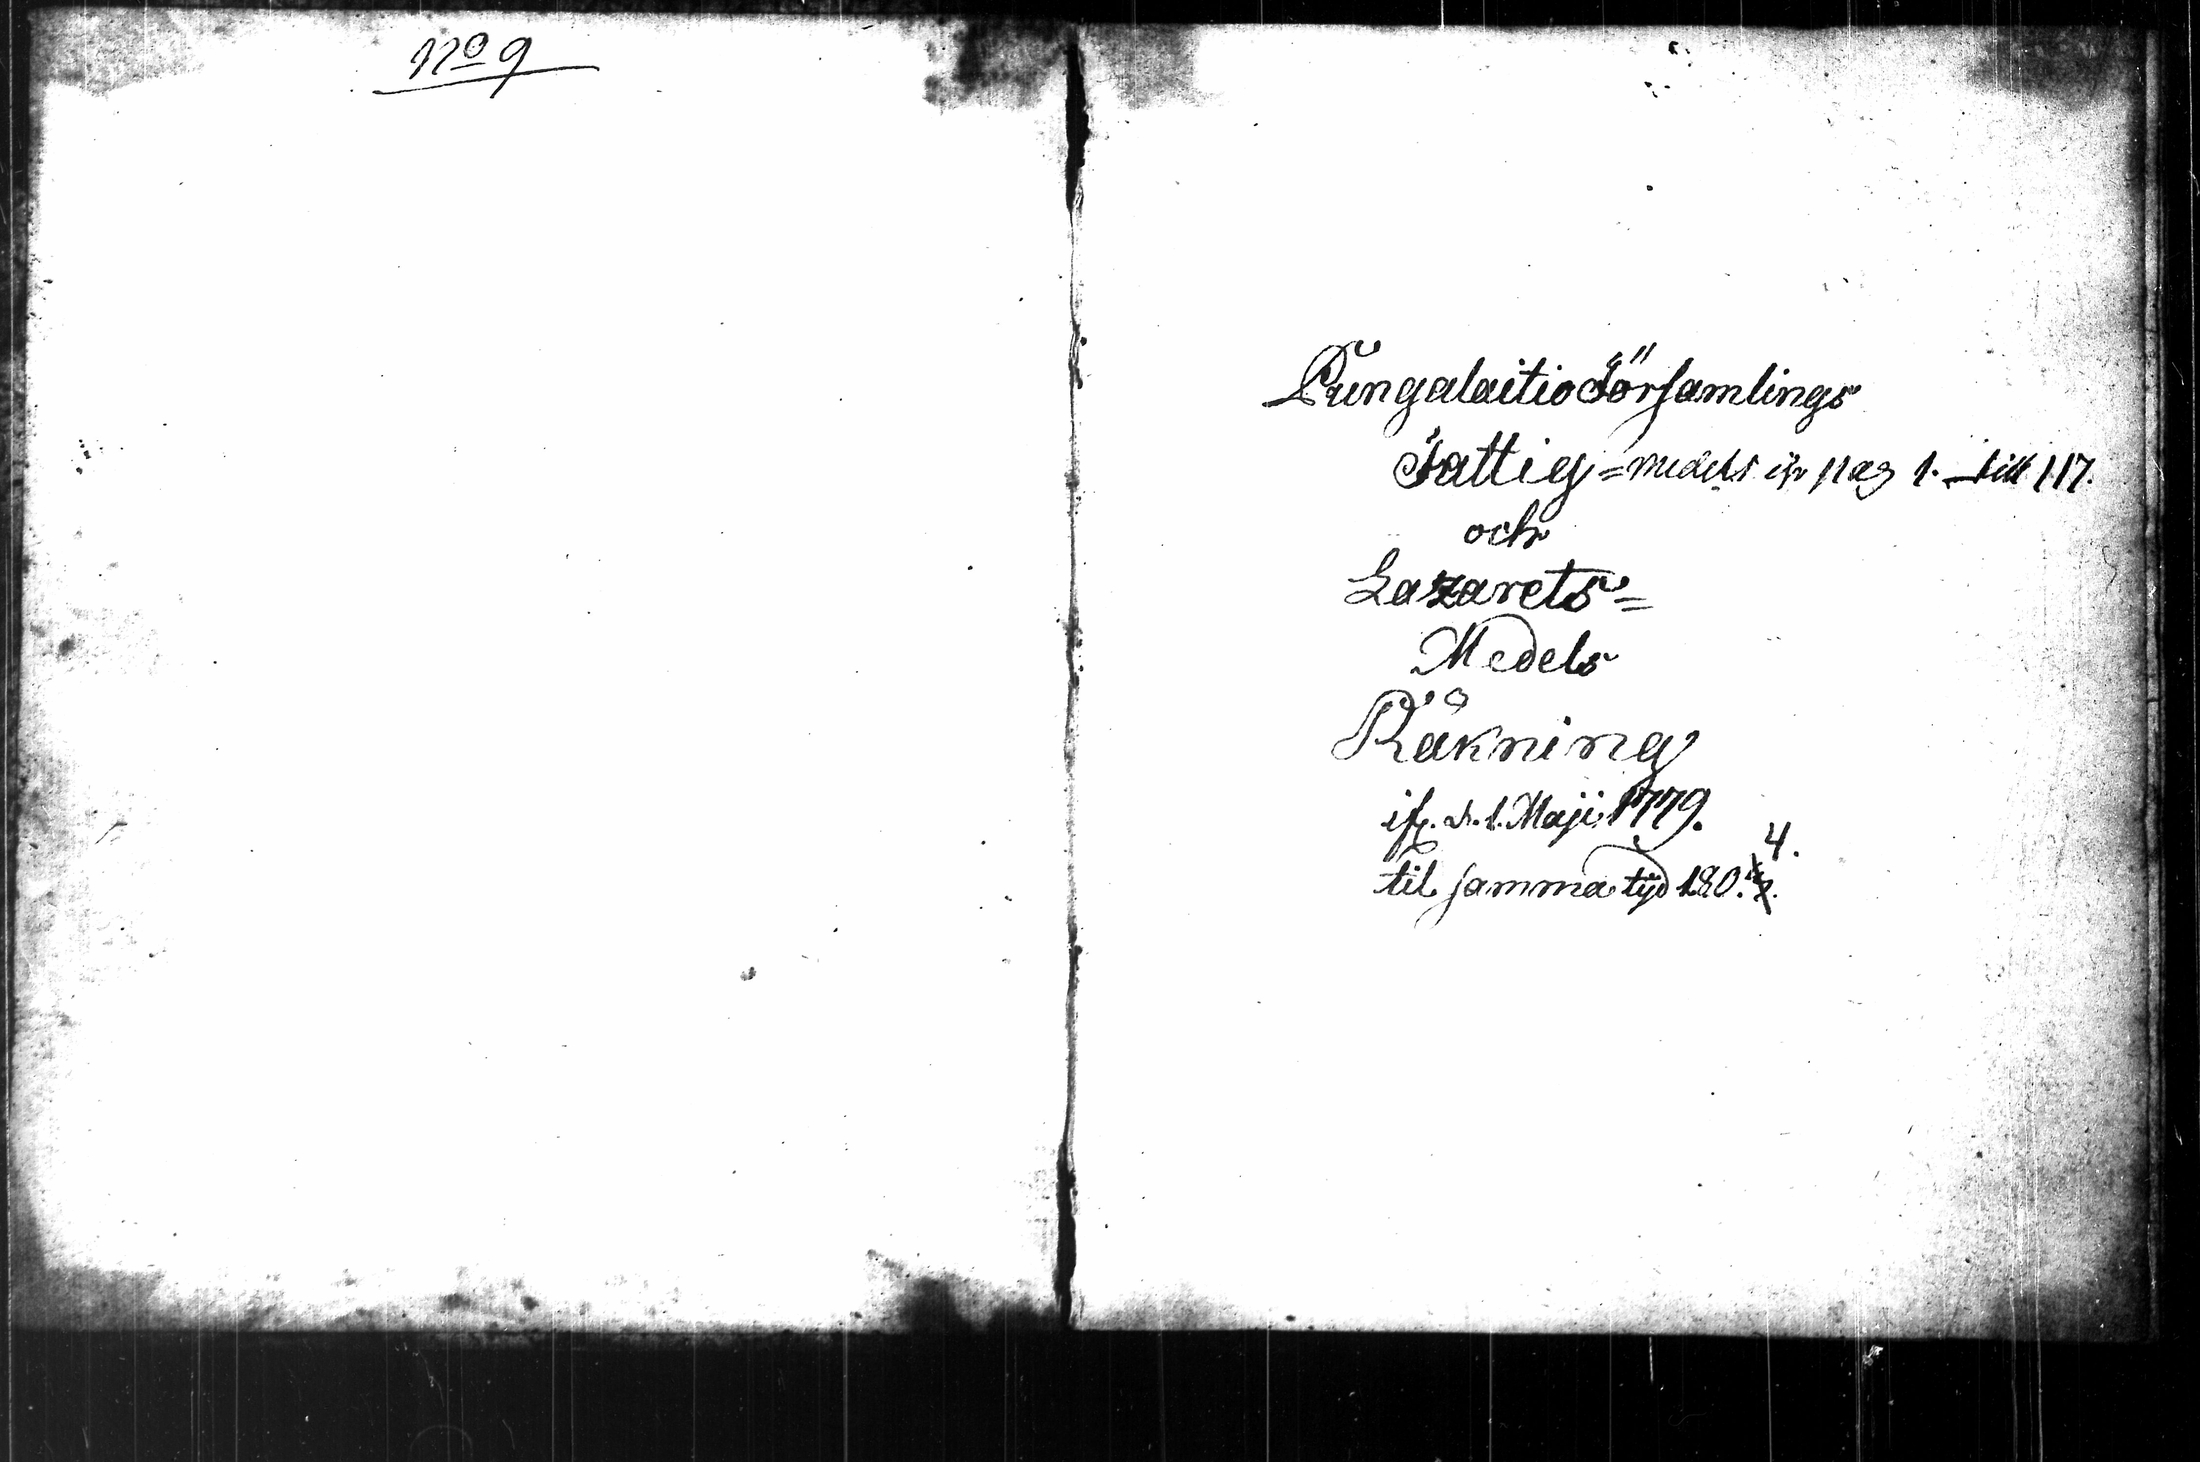 No 9
Pungalaitio Församlings
Fattig=medels ifr pag 1. till 117.
och
Lazarets=
Medels
Räkning
ifr. d. 1. Maji 1779.
til samma tijd 180.4.